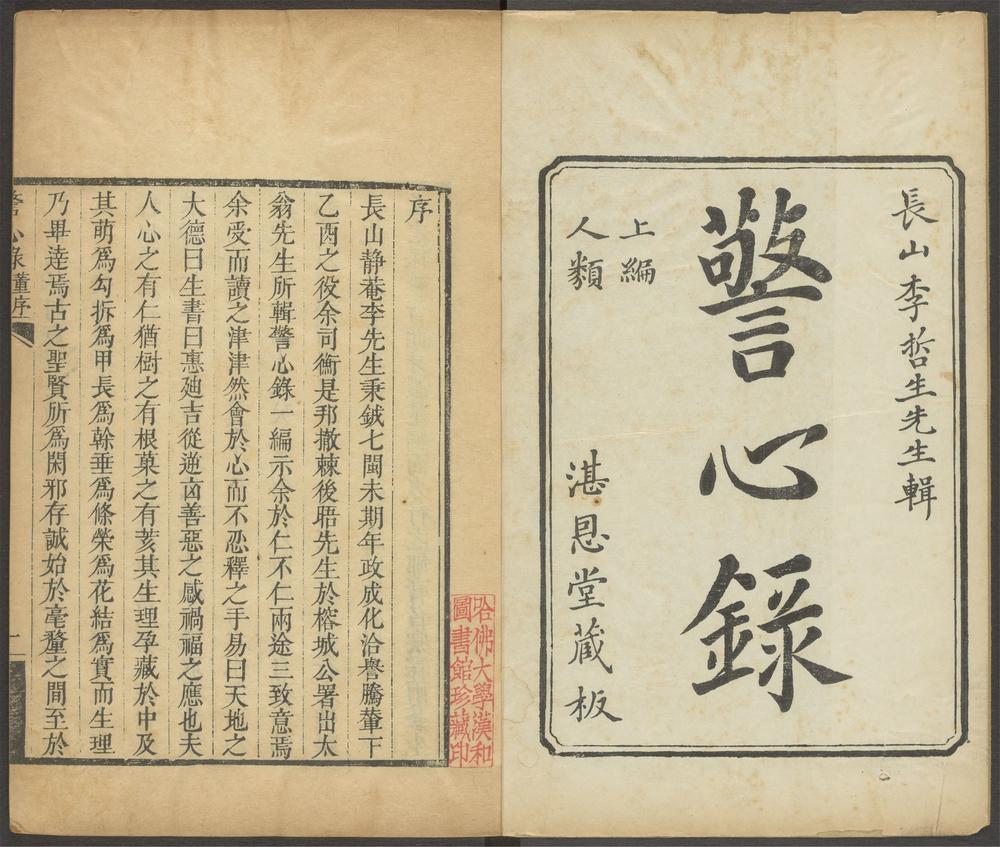 長山李哲生先生輯
警心錄
上編
人類
湛恩堂藏板
哈佛大學漢和
圖書館珍藏印
序
長山静菴李先生秉鉞七閩未期年政成化洽譽騰輦下
乙酉之役余司衡是邦撤棘後晤先生於榕城公署出太
翁先生所輯警心錄一編示余於仁不仁兩途三致意焉
余受而讀之津津然會於心而不忍釋之手易曰天地之
大德曰生書曰惠廸吉從逆凶善惡之感禍福之應也夫
人心之有仁猶樹之有根菓之有荄其生理孕藏於中及
其萌爲勾拆爲甲長爲幹垂爲條榮爲花結爲實而生理
乃畢達焉古之聖賢所爲閑邪存誠始於毫釐之間至於
警心錄董序
一